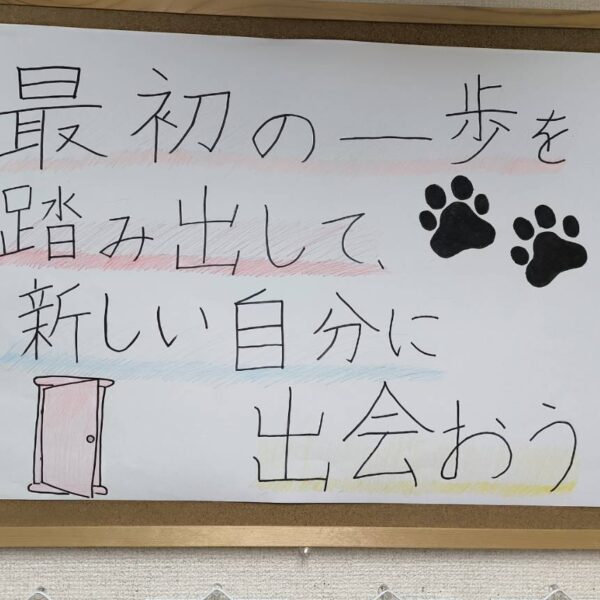 最初の一歩を
踏み出して、
新しい自分に
出会おう